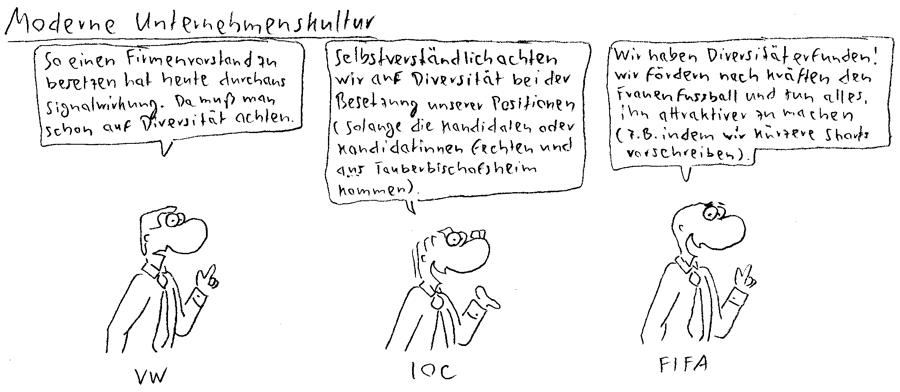 Moderne Unternehmenskultur
So einen Firmenvorstand zu
besetzen hat heute durchaus
Signalwirkung. Da muß man
schon auf Diversität achten.
Selbstverständlich achten
wir auf Diversität bei der
Besetzung unserer Positionen
(solange die Kandidaten oder
Kandidatinnen fechten und
aus Tauberbischofsheim
kommen).
Wir haben Diversität erfunden!
Wir fördern nach Kräften den
Frauenfussball und tun alles,
ihn attraktiver zu machen
(z.B. indem wir kürzere Shorts
vorschreiben).
VW
IOC
FIFA